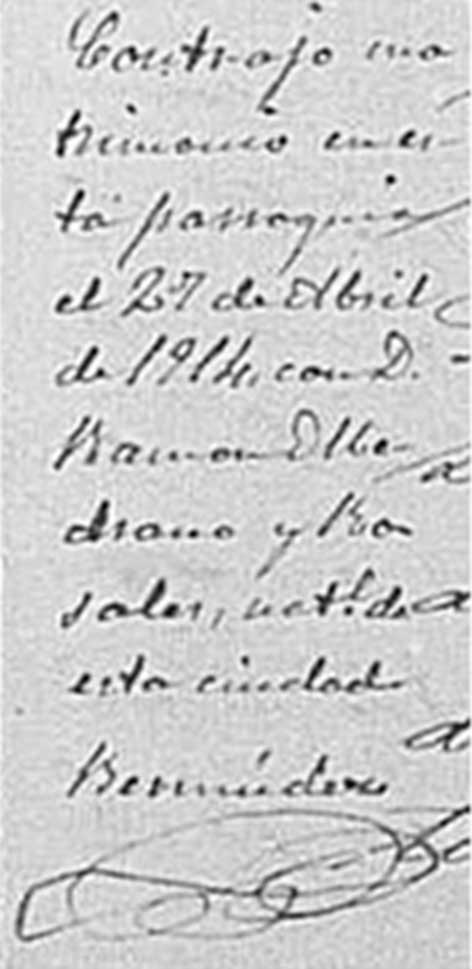 Contrajo ma
trimonio en es-
ta parroquia
el 27 de Abril
de 1914, con D.
Ramon Me-
drano y Ro-
sales, natl. de
esta ciudad
Bermúdez